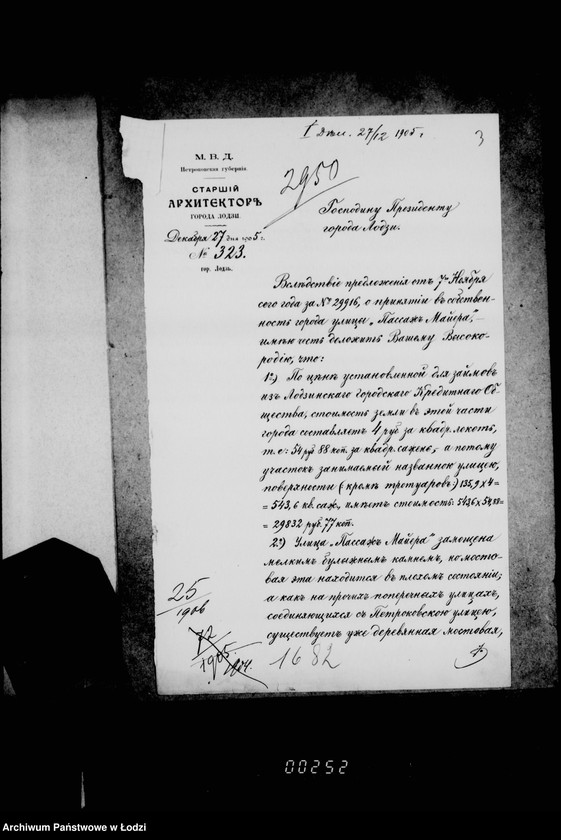 I Дѣл. 27/12 1905 г.
3
М. В. Д.
Петроковская губернія.
СТАРШІЙ
АРХИТЕКТОРЪ
ГОРОДА ЛОДЗИ.
Декабря 27 дня 1905 г.
№ 323.
гор. Лодзь.
2950
Господину Президенту
города Лодзи.
Вслѣдствіе предложенія отъ 7го Ноября
сего года за № 29916, о принятіи въ собствен-
ность города улицы „Пассажъ Майера“, –
имѣю честь доложить Вашему Высоко-
родію, что:
1о) По цѣнѣ установленной для займовъ
изъ Лодзинскаго городскаго Кредитнаго Об-
щества, стоимость земли въ этой части
города составляетъ 4 руб за квадр. локоть,
т. е: 54 руб 88 коп. за квадр. сажень, а потому
участокъ занимаемый названною улицею,
поверхности (кромѣ тротуаровъ) 135,9 x 4 =
= 543,6 кв. саж, имѣетъ стоимость: 543,6 x 54,88 =
= 29832 руб. 77 коп.
2о) Улица „Пассажъ Майера“ замощена
мелкимъ булыжнымъ камнемъ, но мосто-
вая эта находится въ плохомъ состояніи;
а какъ на прочихъ поперечныхъ улицахъ,
соединяющихся съ Петроковскою улицею,
существуетъ уже деревянная мостовая,
25
1906
72
1905
1904.
1682
00252
Archiwum Państwowe w Łodzi